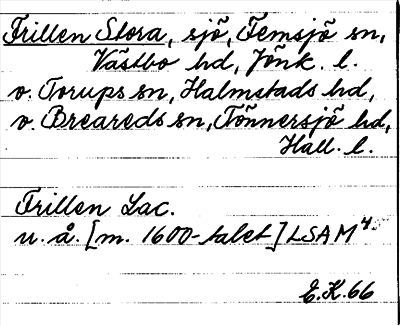 Frillen Stora, sjö, Femsjö sn,
Västbo hd, Jönk. l.
o. Torups sn, Halmstads hd,
o. Breareds sn, Tönnersjö hd,
Hall. l.
Frillen Lac.
u. å. [m. 1600-talet] LSAM 4.
E.K. 66